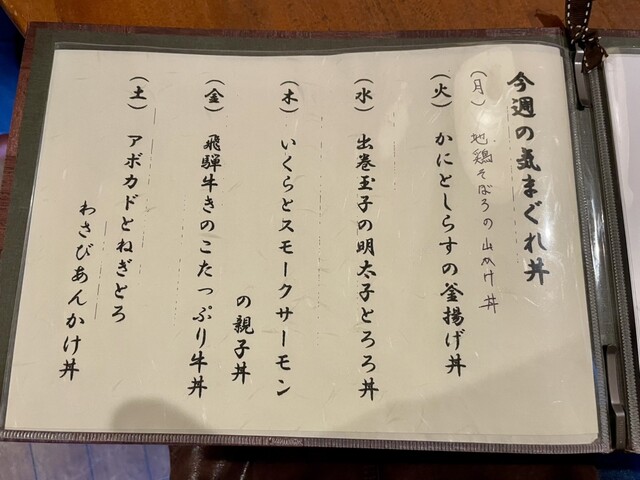 今週の気まぐれ丼
（月） 地鶏そぼろの山かけ丼
（火） かにとしらすの釜揚げ丼
（水） 出巻玉子の明太子とろろ丼
（木） いくらとスモークサーモン
の親子丼
（金） 飛騨牛きのこたっぷり牛丼
（土） アボカドとねぎとろ
わさびあんかけ丼